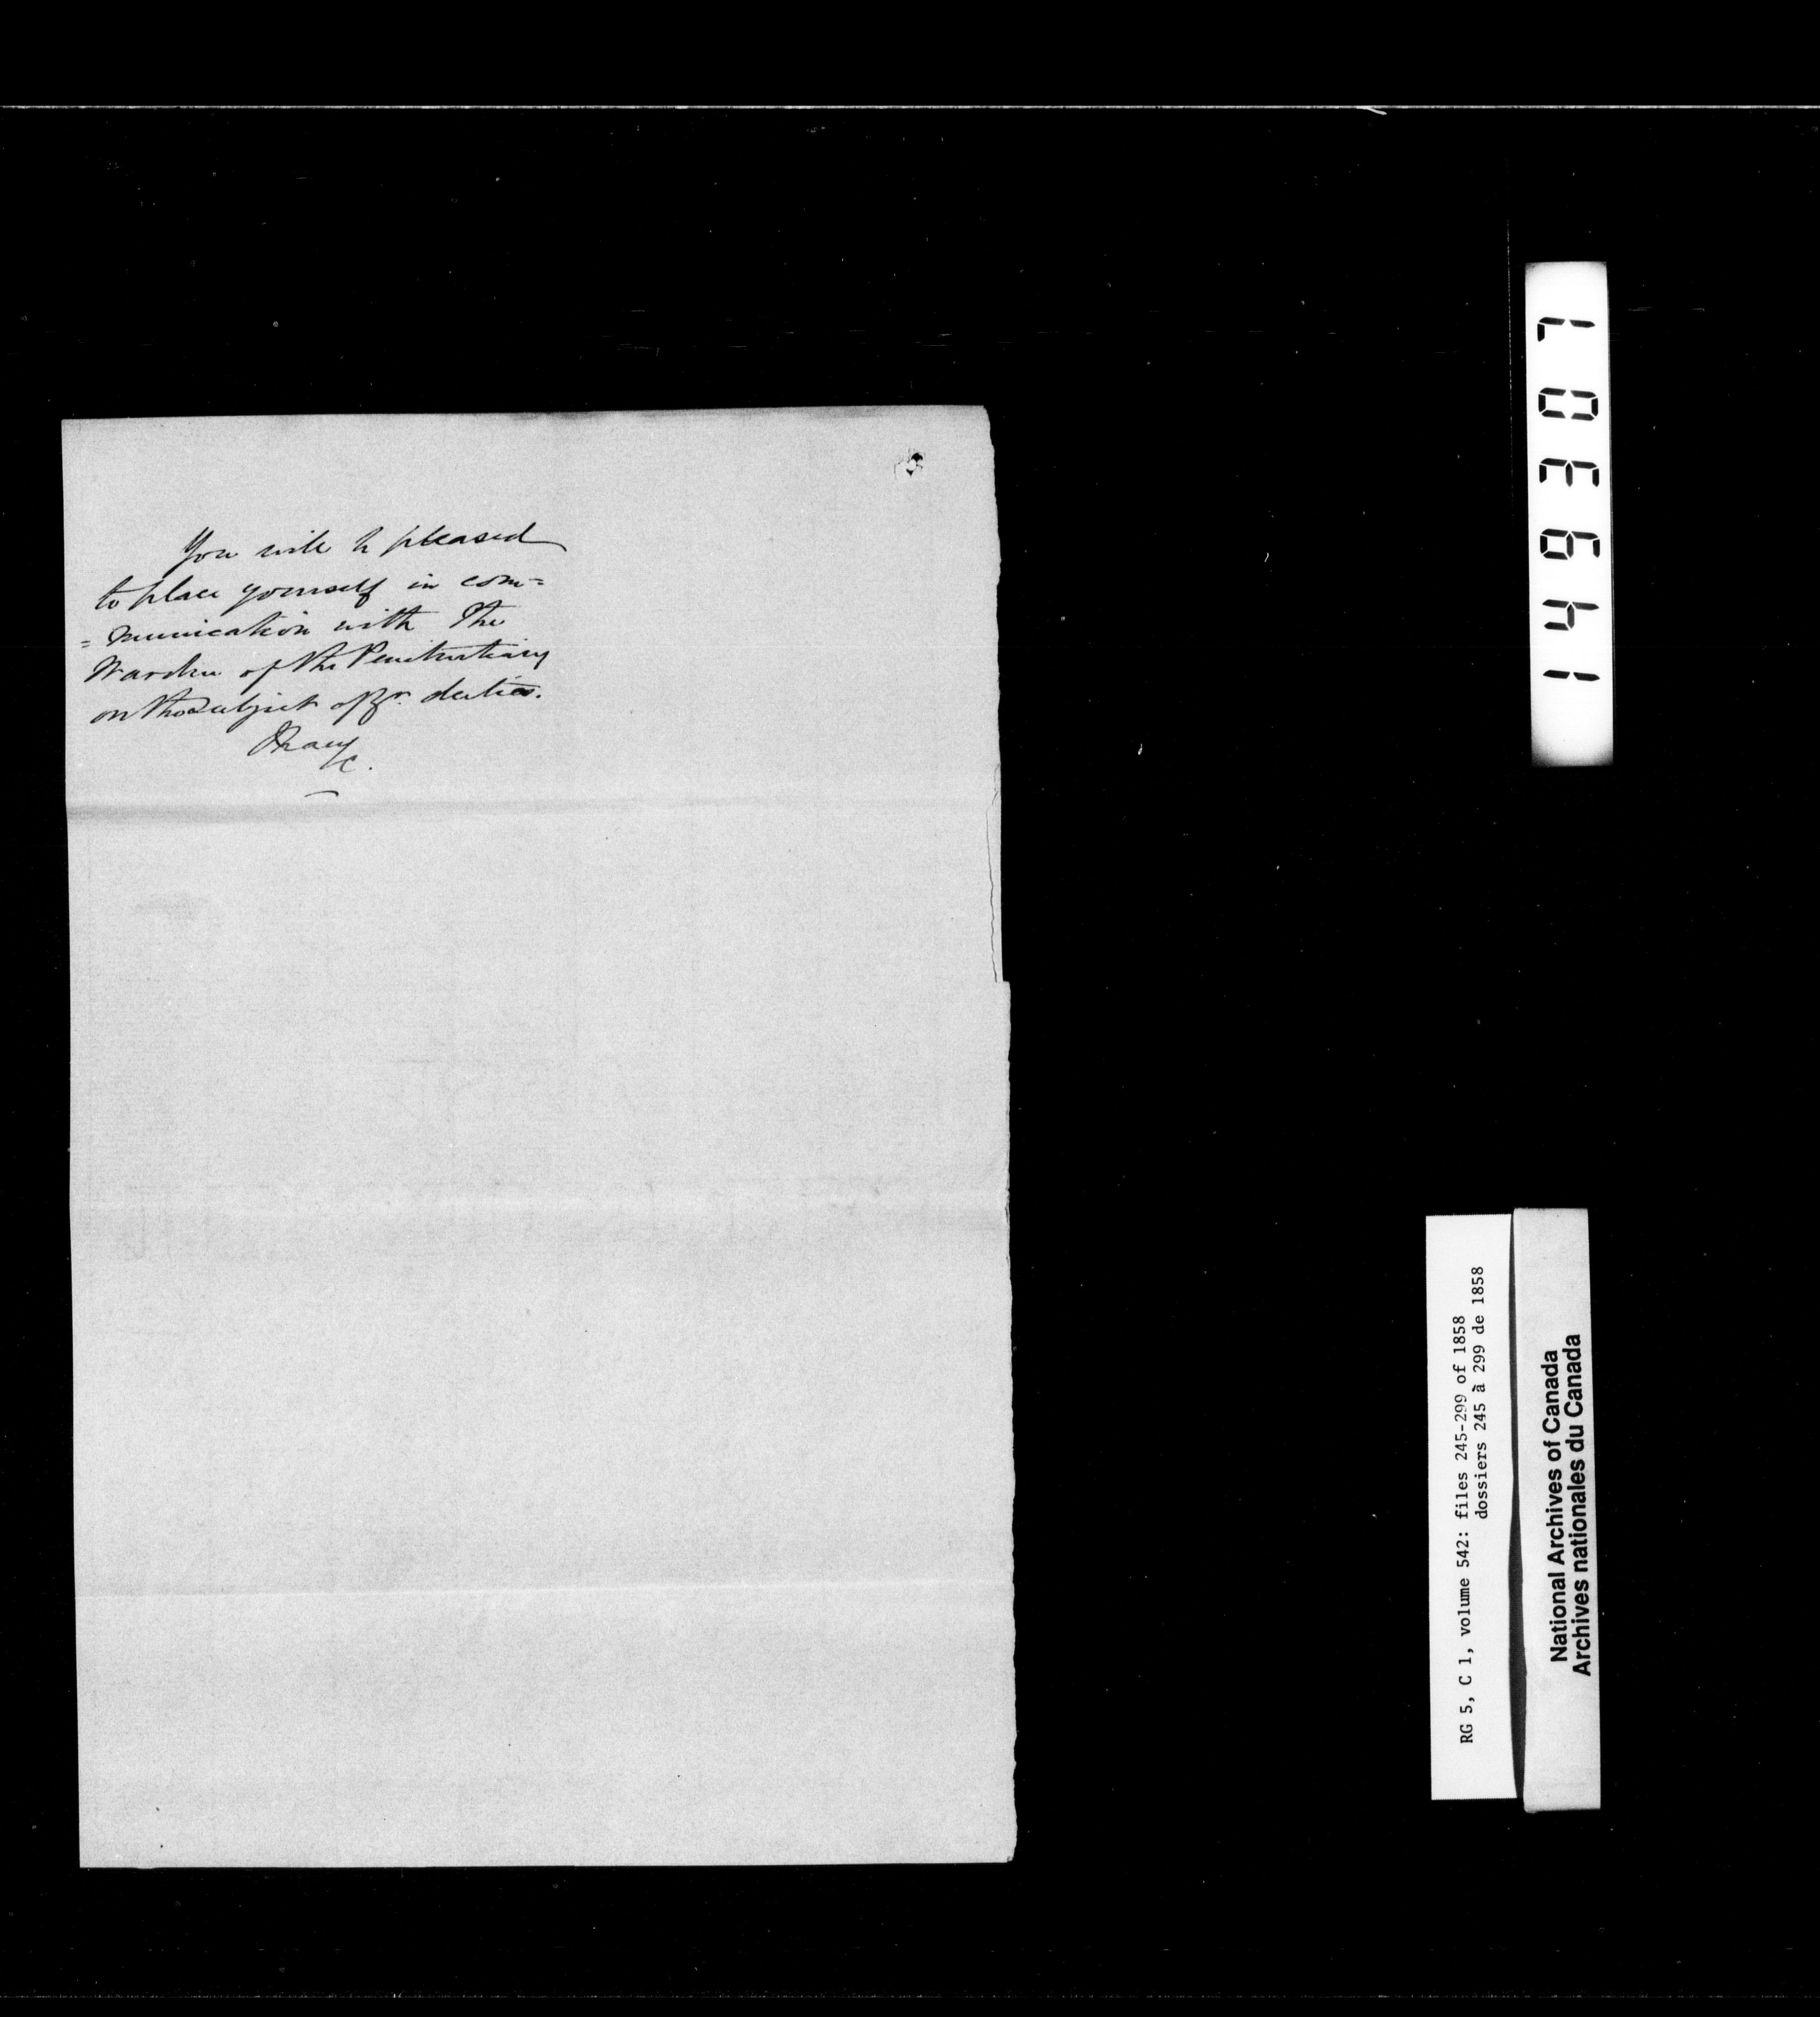 You will be pleased
to place yourself in com=
=munication with the
Warden of the Penitentiary
on the subject of yr. duties.
I have
&c.
146307
RG 5, C 1, volume 542: files 245-299 of 1858
dossiers 245 à 299 de 1858
National Archives of Canada
Archives nationales du Canada